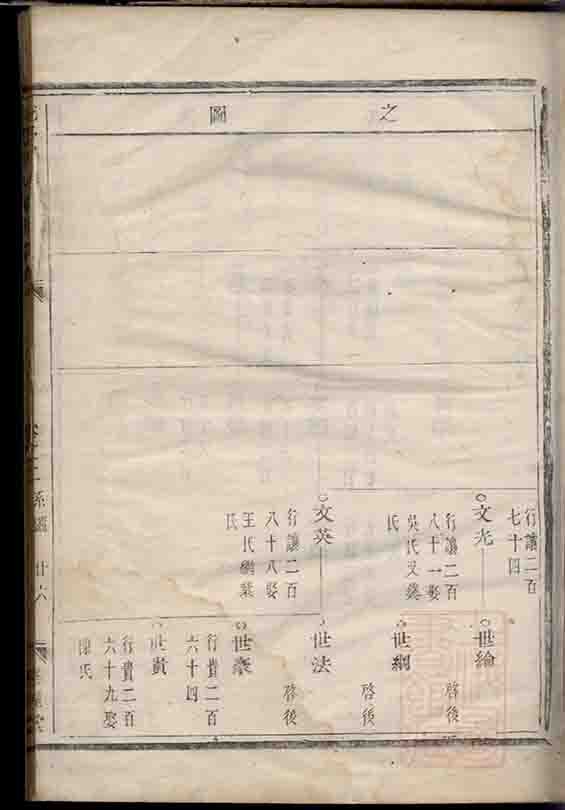 之圖
行讓二百
七十四
文光
行讓二百
八十一娶
吳氏又娶
氏
文英
行讓二百
八十八娶
王氏繼葉
氏
世綸
啓後
世綱
啓後
世法
啓後
世豪
行貴二百
六十四
世貴
行貴二百
六十九娶
陳氏
系圖
廿六